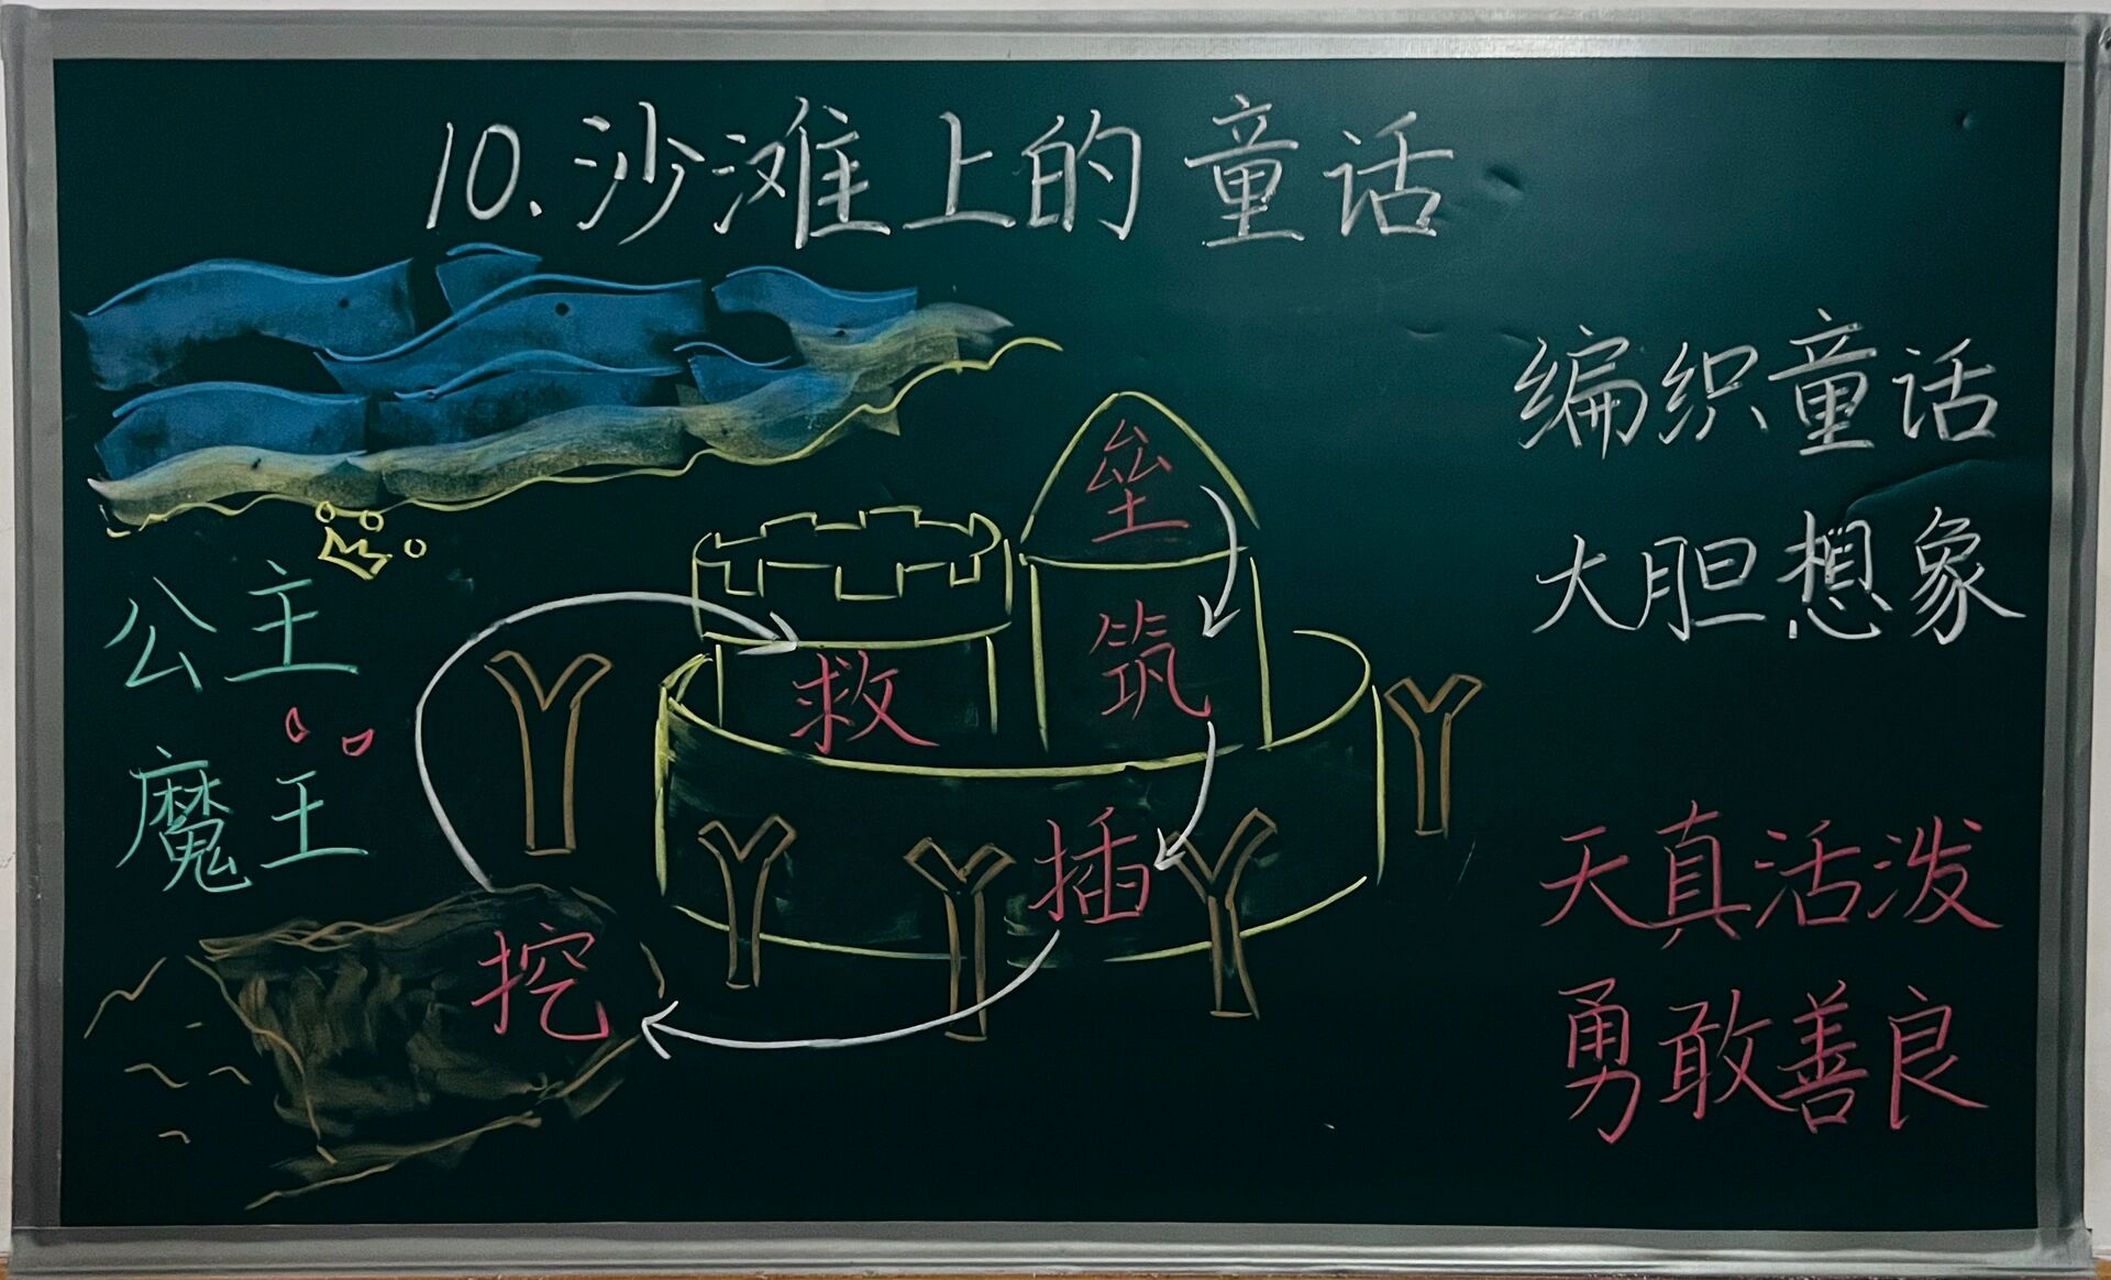 10.沙滩上的童话
编织童话
大胆想象
垒
筑
救
插
挖
公主
魔王
天真活泼
勇敢善良